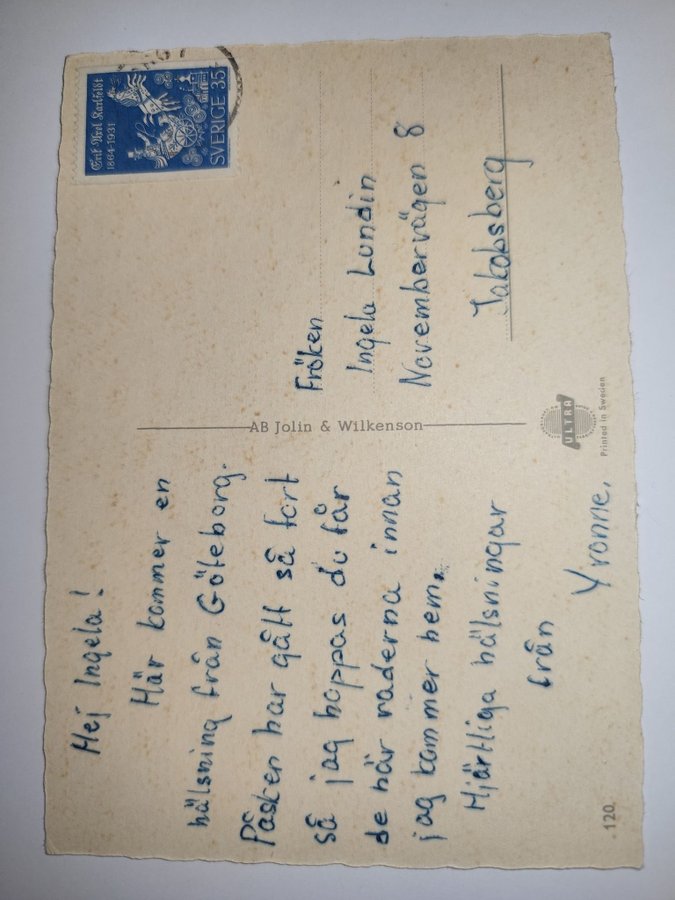 Hej Ingela!
Här kommer en
hälsning från Göteborg.
Påsken har gått så fort
så jag hoppas du får
de här raderna innan
jag kommer hem.
Hjärtliga hälsningar
från
Yvonne.
120
AB Jolin & Wilkenson
ULTRA
Printed in Sweden
Erik Axel Karlfeldt
1864-1931
SVERIGE 35
Fröken
Ingela Lundin
Novembervägen 8
Jakobsberg